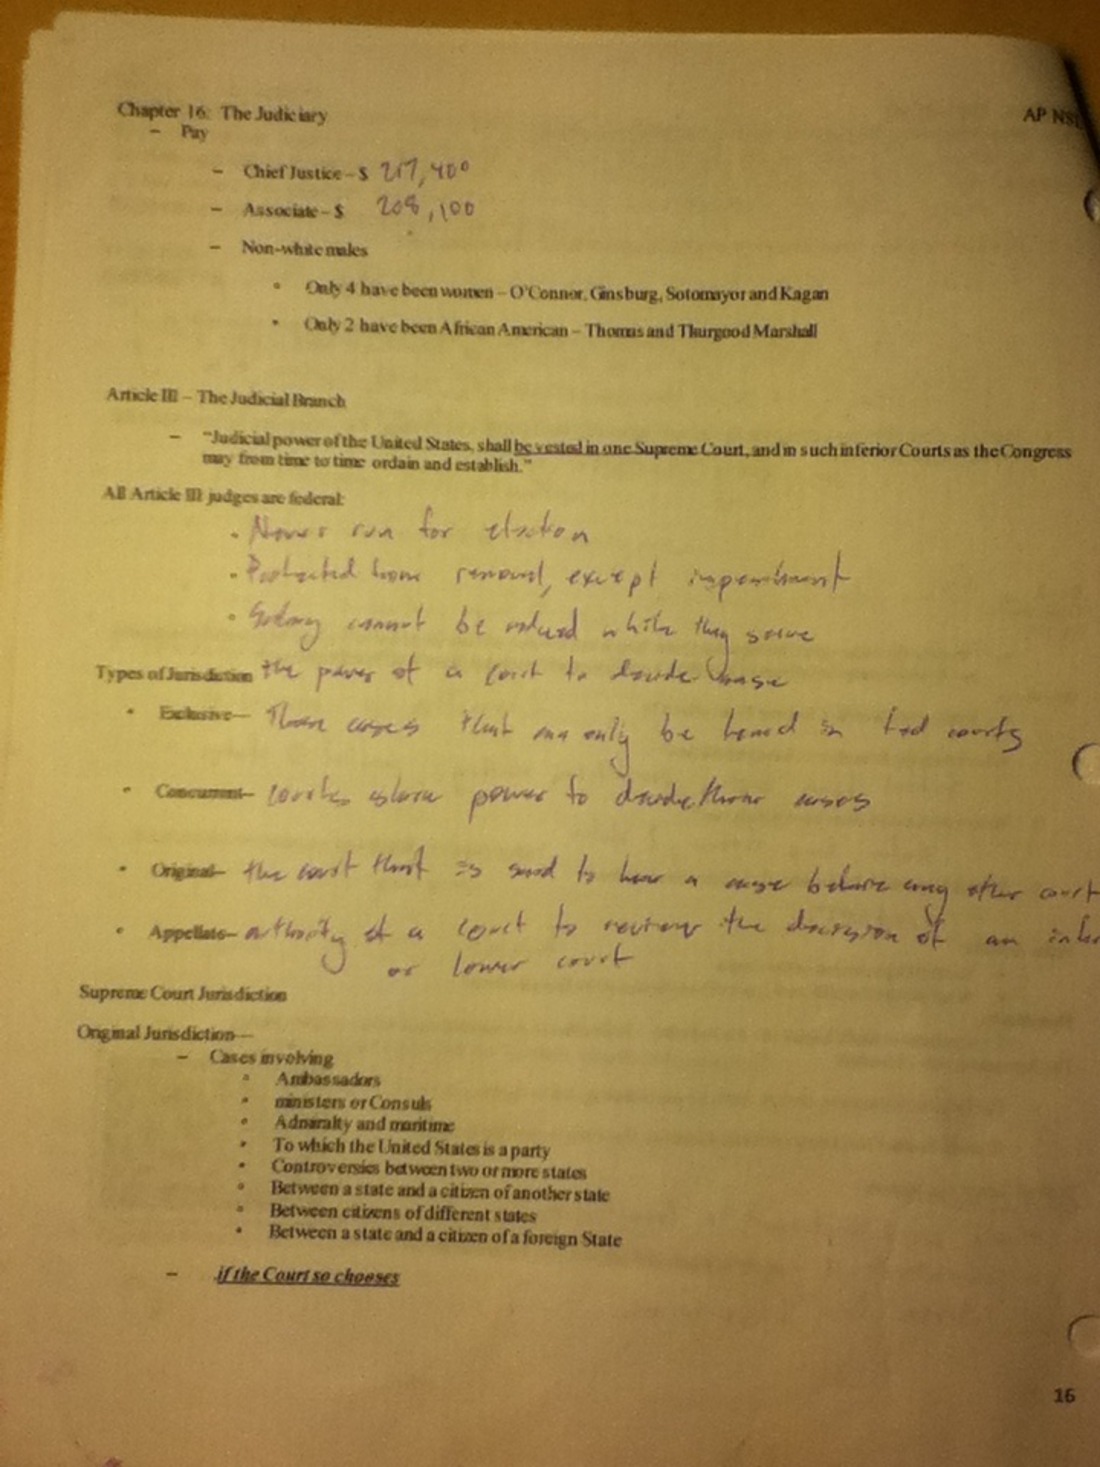 Chapter 16: The Judiciary
AP NSL
– Pay
– Chief Justice – $ 217,400
– Associate – $ 208,100
– Non-white males
• Only 4 have been women – O'Connor, Ginsburg, Sotomayor and Kagan
• Only 2 have been African American – Thomas and Thurgood Marshall
Article III – The Judicial Branch
– "Judicial power of the United States, shall be vested in one Supreme Court, and in such inferior Courts as the Congress
may from time to time ordain and establish."
All Article III judges are federal:
• Never run for election
• Protected from removal, except impeachment
• Salary cannot be reduced while they serve
Types of Jurisdiction the power of a court to decide case
• Exclusive– Those cases that can only be heard in fed courts
• Concurrent– courts share power to decide these cases
• Original– the court that is said to hear a case before any other court
• Appellate– authority of a court to review the decision of an
or lower court
Supreme Court Jurisdiction
Original Jurisdiction—
– Cases involving
• Ambassadors
• ministers or Consuls
• Admiralty and maritime
• To which the United States is a party
• Controversies between two or more states
• Between a state and a citizen of another state
• Between citizens of different states
• Between a state and a citizen of a foreign State
– .if the Court so chooses
16